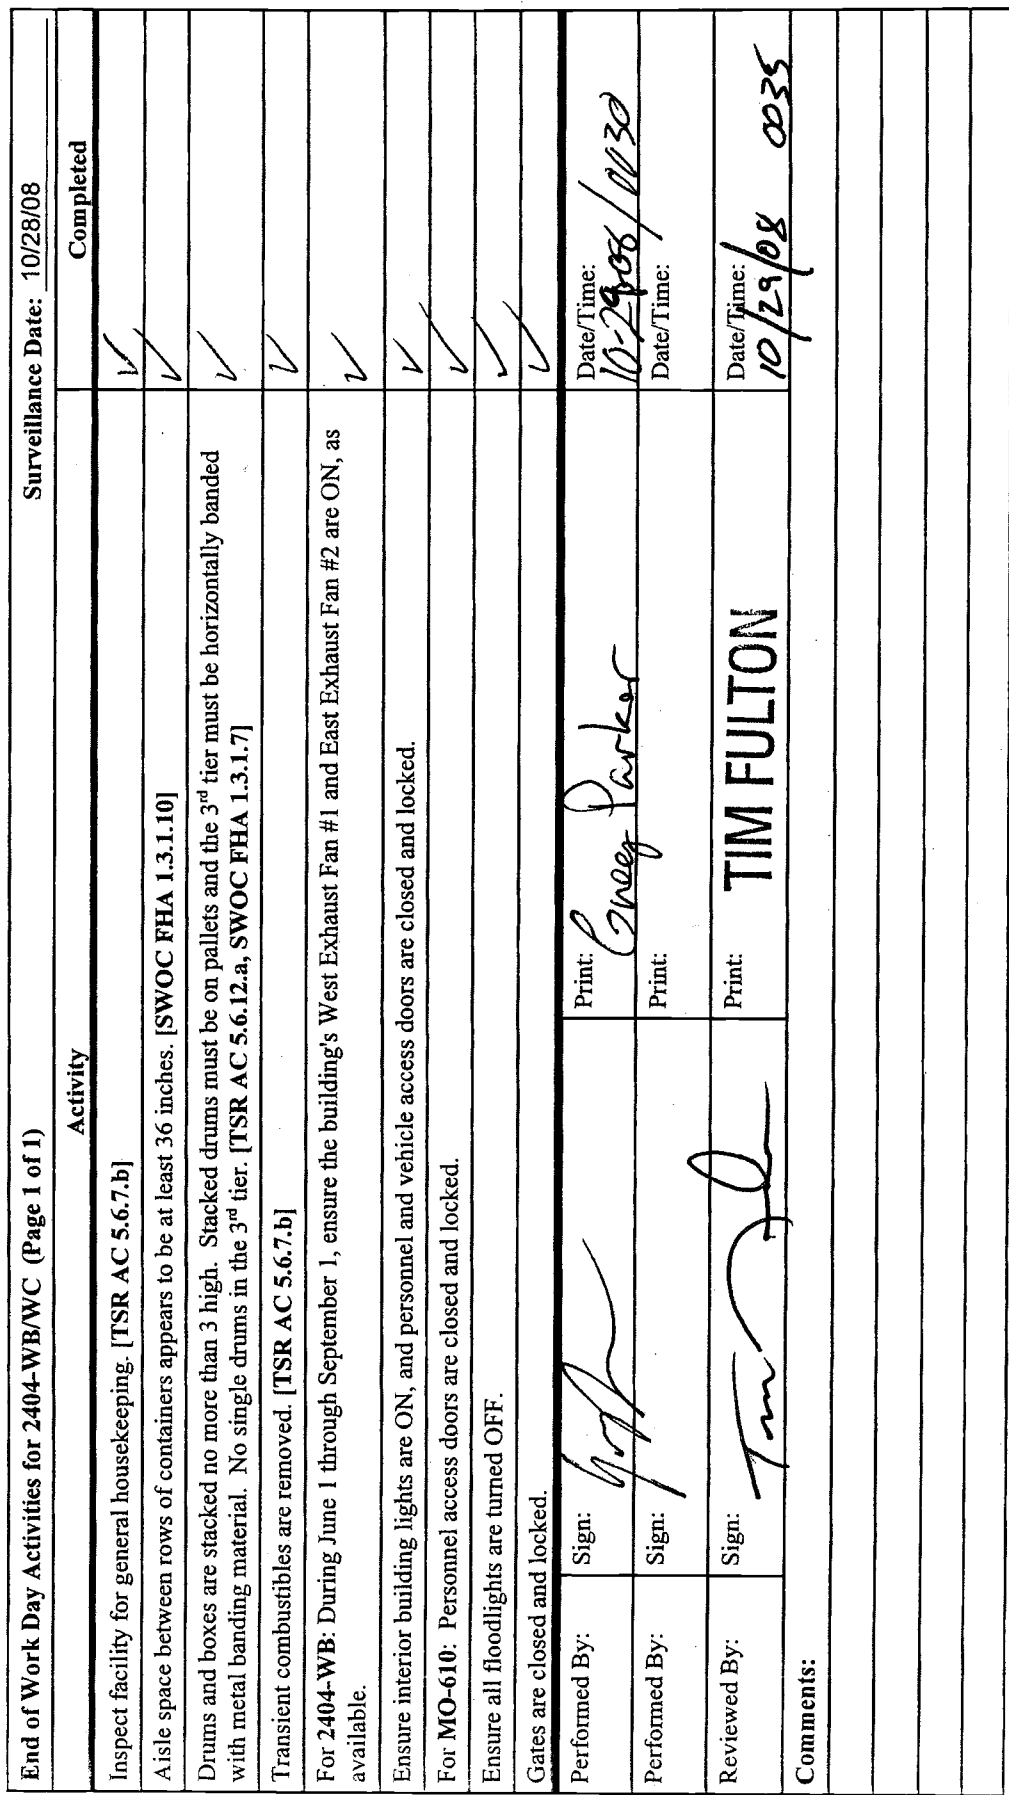 End of Work Day Activities for 2404-WB/WC (Page 1 of 1) Surveillance Date: 10/28/08
Activity Completed
Inspect facility for general housekeeping. [TSR AC 5.6.7.b] ✓
Aisle space between rows of containers appears to be at least 36 inches. [SWOC FHA 1.3.1.10] ✓
Drums and boxes are stacked no more than 3 high. Stacked drums must be on pallets and the 3rd tier must be horizontally banded ✓
with metal banding material. No single drums in the 3rd tier. [TSR AC 5.6.12.a, SWOC FHA 1.3.1.7]
Transient combustibles are removed. [TSR AC 5.6.7.b] ✓
For 2404-WB: During June 1 through September 1, ensure the building's West Exhaust Fan #1 and East Exhaust Fan #2 are ON, as ✓
available.
Ensure interior building lights are ON, and personnel and vehicle access doors are closed and locked. ✓
For MO-610: Personnel access doors are closed and locked. ✓
Ensure all floodlights are turned OFF. ✓
Gates are closed and locked. ✓
Performed By: Sign: Print: Parker Date/Time: 10-29-08/0030
Performed By: Sign: Print: Date/Time:
Reviewed By: Sign: Print: TIM FULTON Date/Time: 10/29/08 0035
Comments: